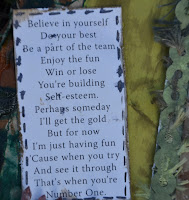 Believe in yourself
Do your best
Be a part of the team
Enjoy the fun
Win or lose
You're building
Self-esteem.
Perhaps someday
I'll get the gold
But for now
I'm just having fun
'Cause when you try
And see it through
That's when you're
Number One.